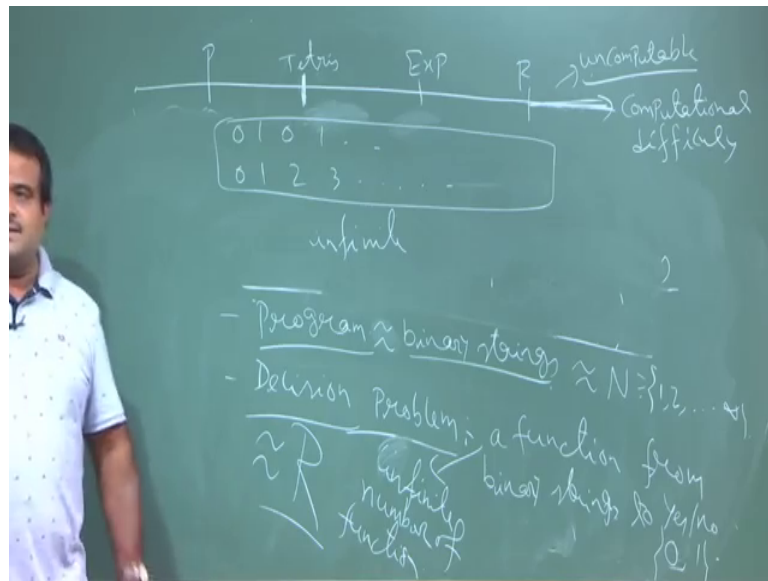 P Tetris EXP R → uncomputable
Computational
difficuly
0 1 0 1 . . .
0 1 2 3 . . . . . .
infinite
2
- Program ≈ binary strings ≈ N = {1,2, .... ∞}.
- Decision Problem: a function from
binary strings to Yes/no
{0 1}.
≈ R
infinite
number of
function